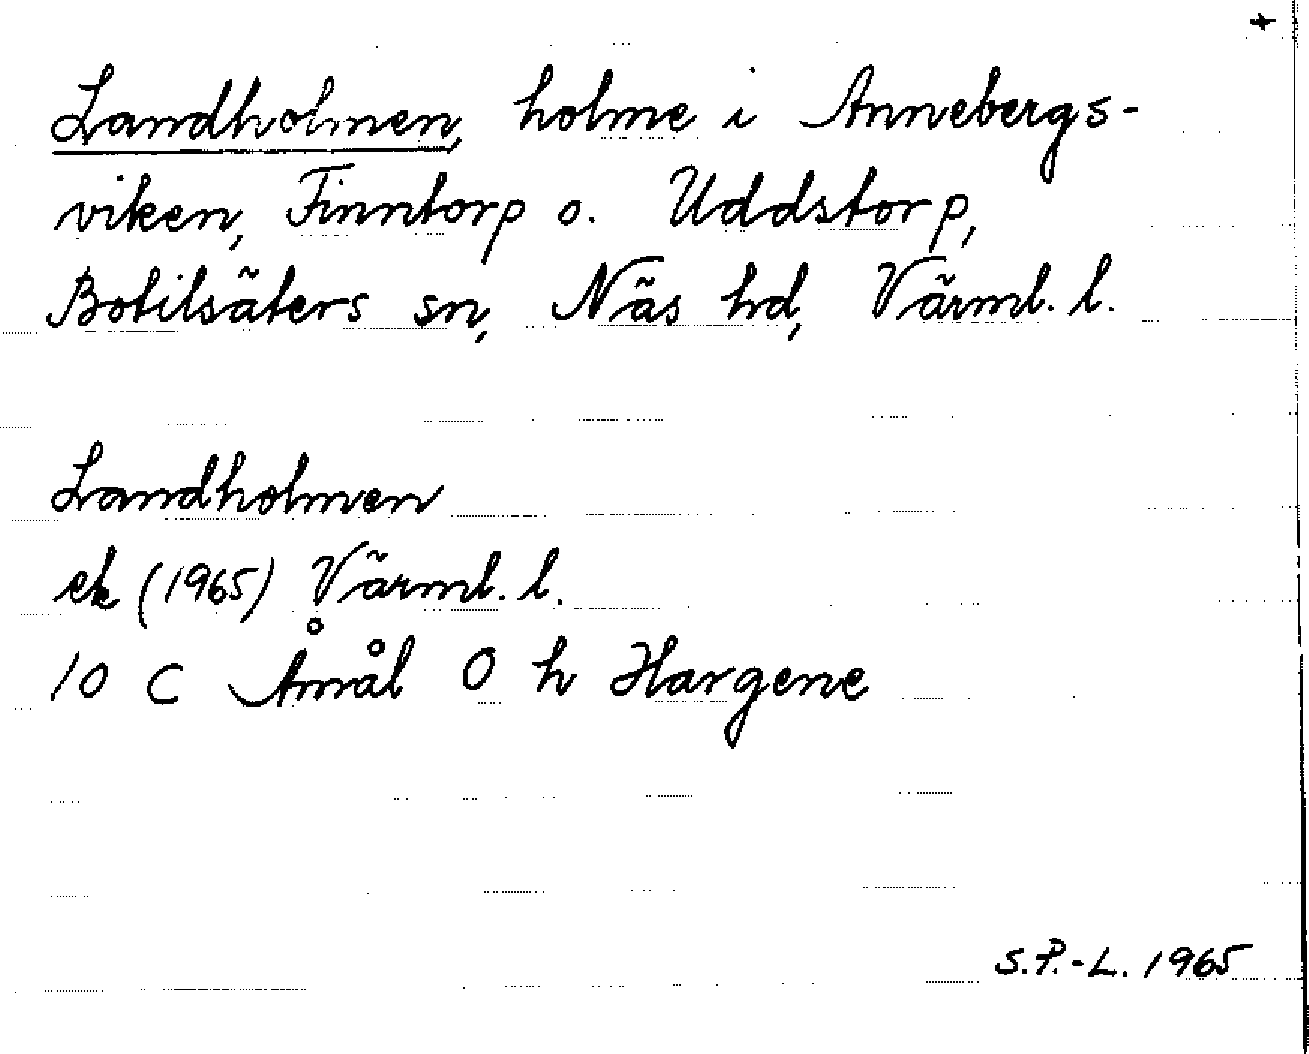 +
Landholmen, holme i Annebergs-
viken, Finntorp o. Uddstorp,
Botilsäters sn, Näs hd, Värml. l.
Landholmen
ek (1965) Värml. l.
10 C Åmål O h Hargene
S.P.-L. 1965